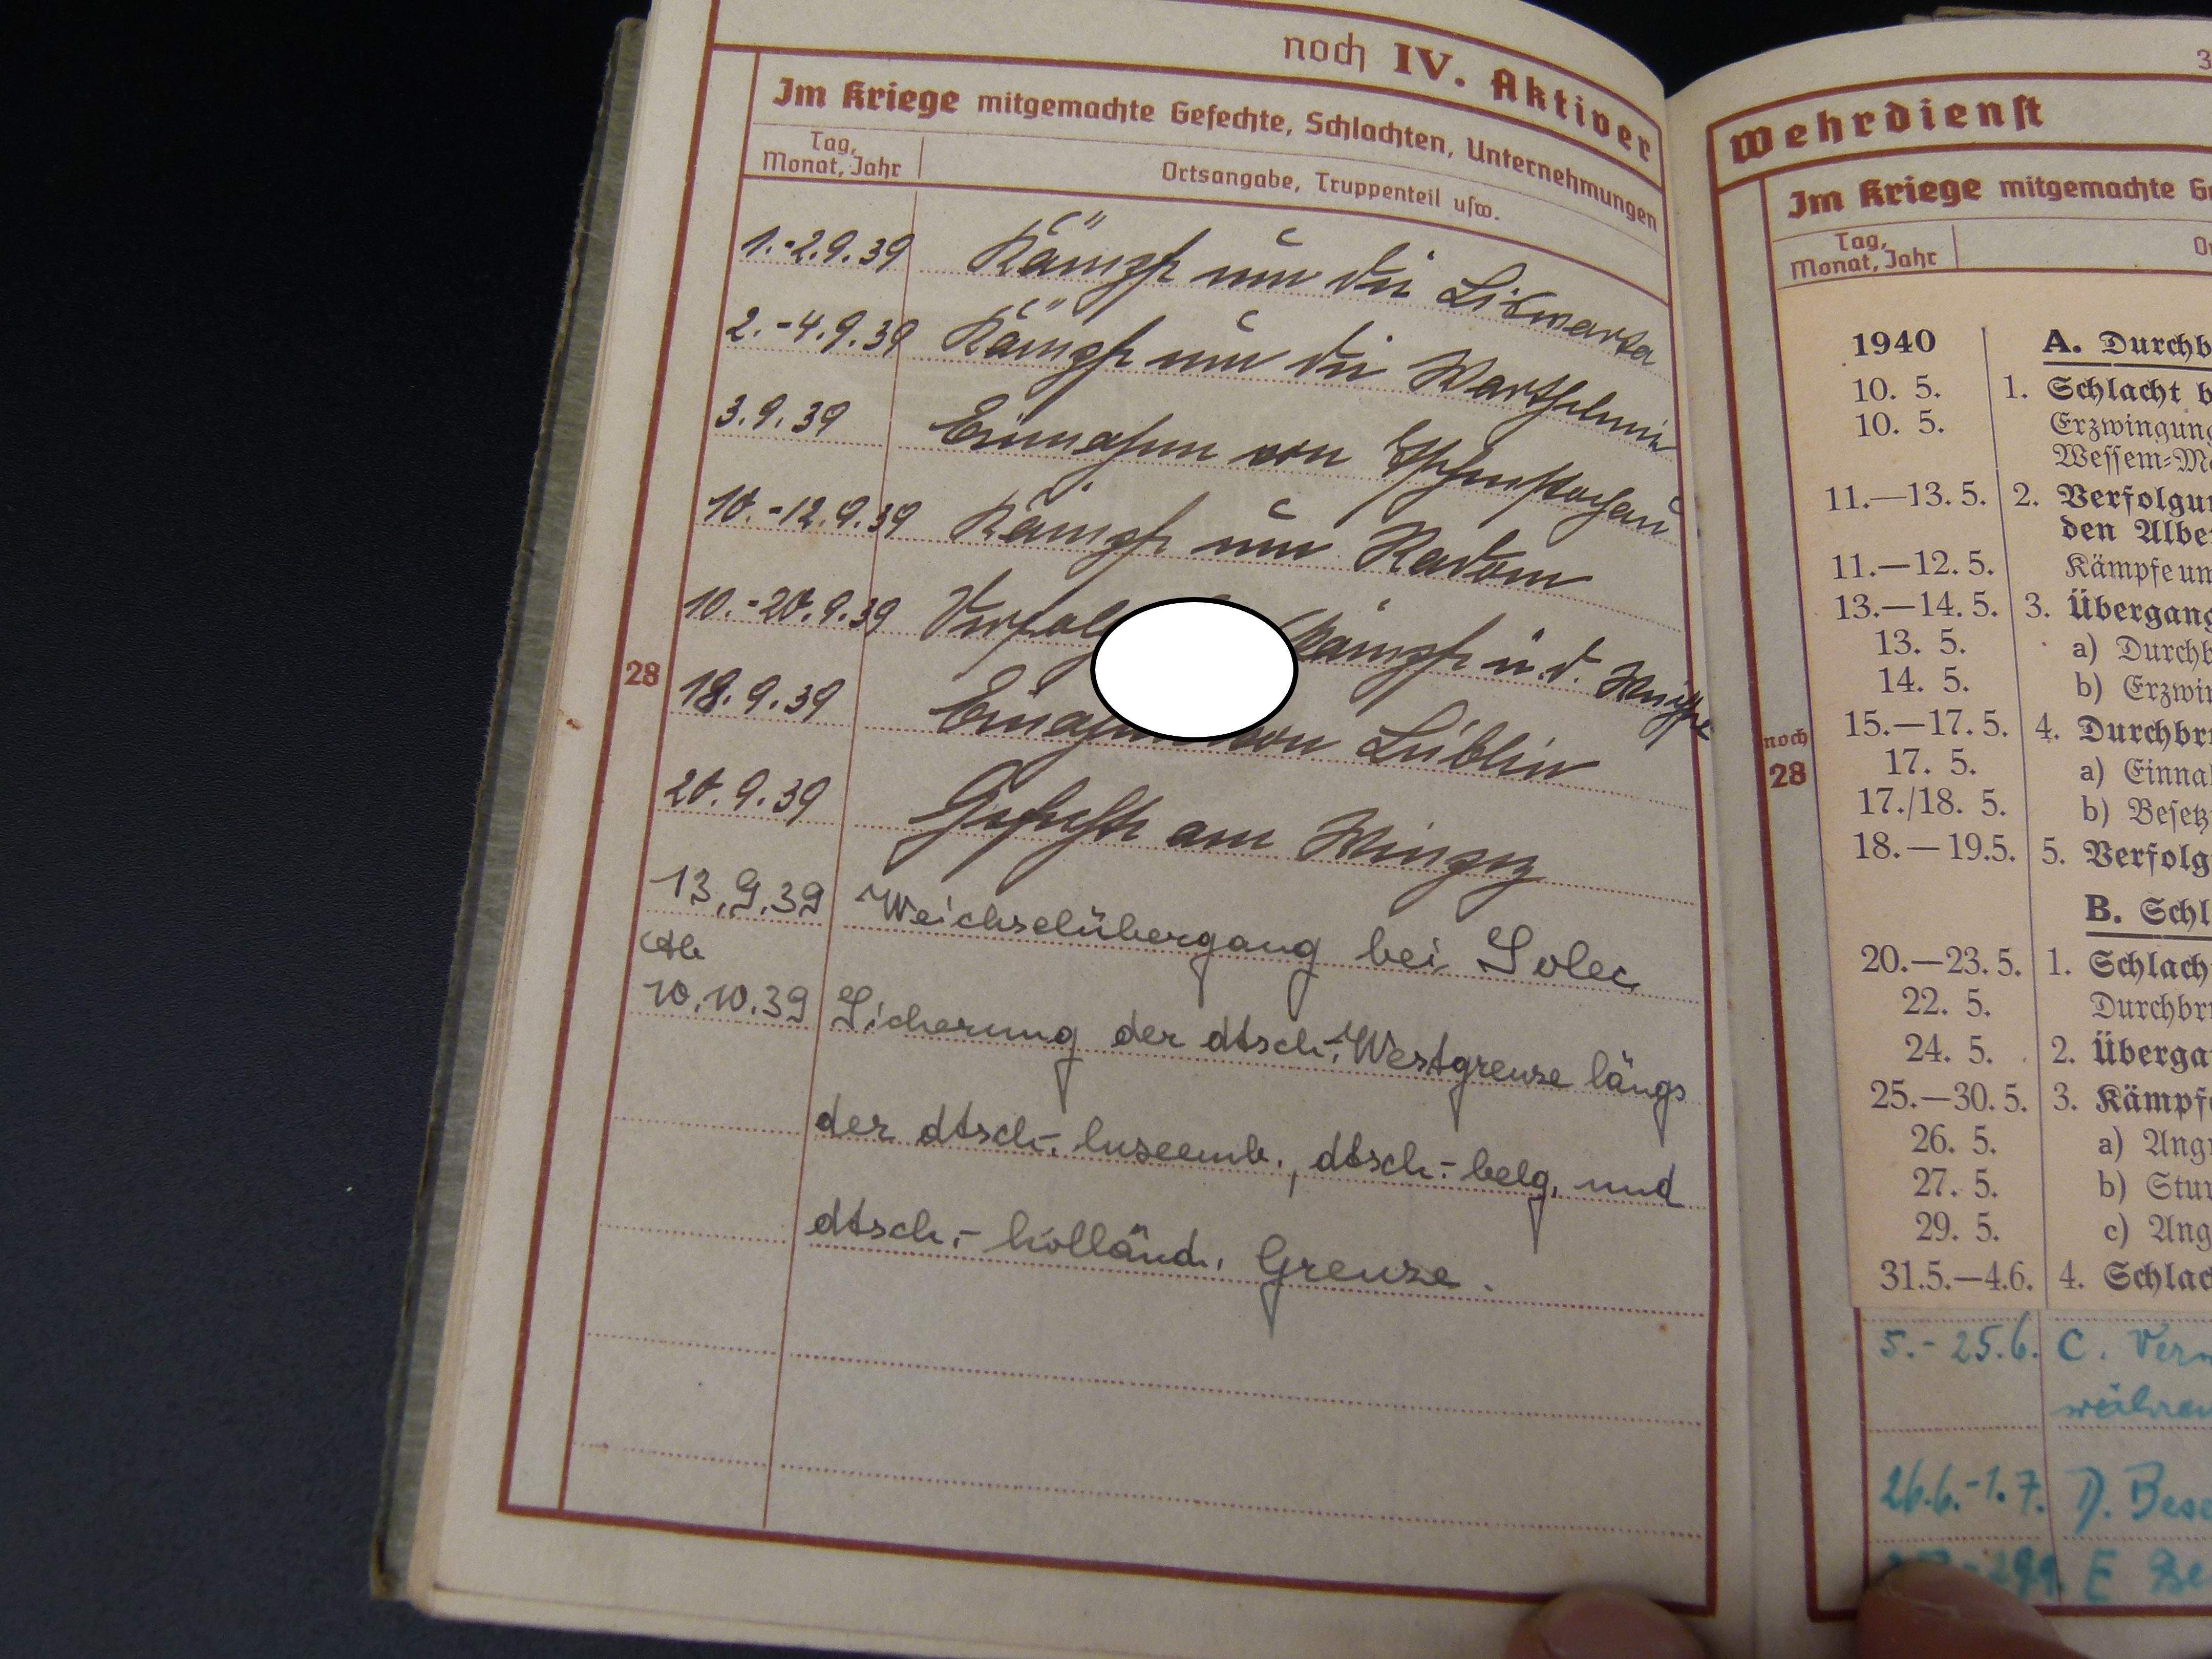 noch IV. Aktiver
Im Kriege mitgemachte Gefechte, Schlachten, Unternehmungen
Tag,
Monat, Jahr
Ortsangabe, Truppenteil usw.
1.-2.9.39 Kämpfe um die Liswarta
2.-4.9.39 Kämpfe um die Warthelinie
3.9.39 Einnahme von Tschenstochau
10.-12.9.39 Kämpfe um Radom
10.-20.9.39 Kämpfe ü. d. Weichsel
28
18.9.39 von Lublin
20.9.39 Gefecht am
13.9.39 Weichselübergang bei Solec
Ab
10.10.39 Sicherung der dtsch. Westgrenze längs
der dtsch.-luxemb., dtsch.-belg. und
dtsch.-holländ. Grenze.
Wehrdienst
Im Kriege mitgemachte
Tag,
Monat, Jahr
1940 A. Durchb
10. 5. 1. Schlacht b
10. 5. Erzwingung
Wessem-M
11.—13. 5. 2. Verfolgu
den Albe
11.—12. 5. Kämpfe um
13.—14. 5. 3. Übergang
13. 5. a) Durchb
14. 5. b) Erzwi
15.—17. 5. 4. Durchbr
noch
28
17. 5. a) Einna
17./18. 5. b) Besetz
18.—19.5. 5. Verfolg
B. Schl
20.—23. 5. 1. Schlach
22. 5. Durchbr
24. 5. 2. Überga
25.—30. 5. 3. Kämpf
26. 5. a) Ang
27. 5. b) Stu
29. 5. c) Ang
31.5.—4.6. 4. Schlac
5.-25.6. C. Vern
26.6.-1.7. D. Bes
E